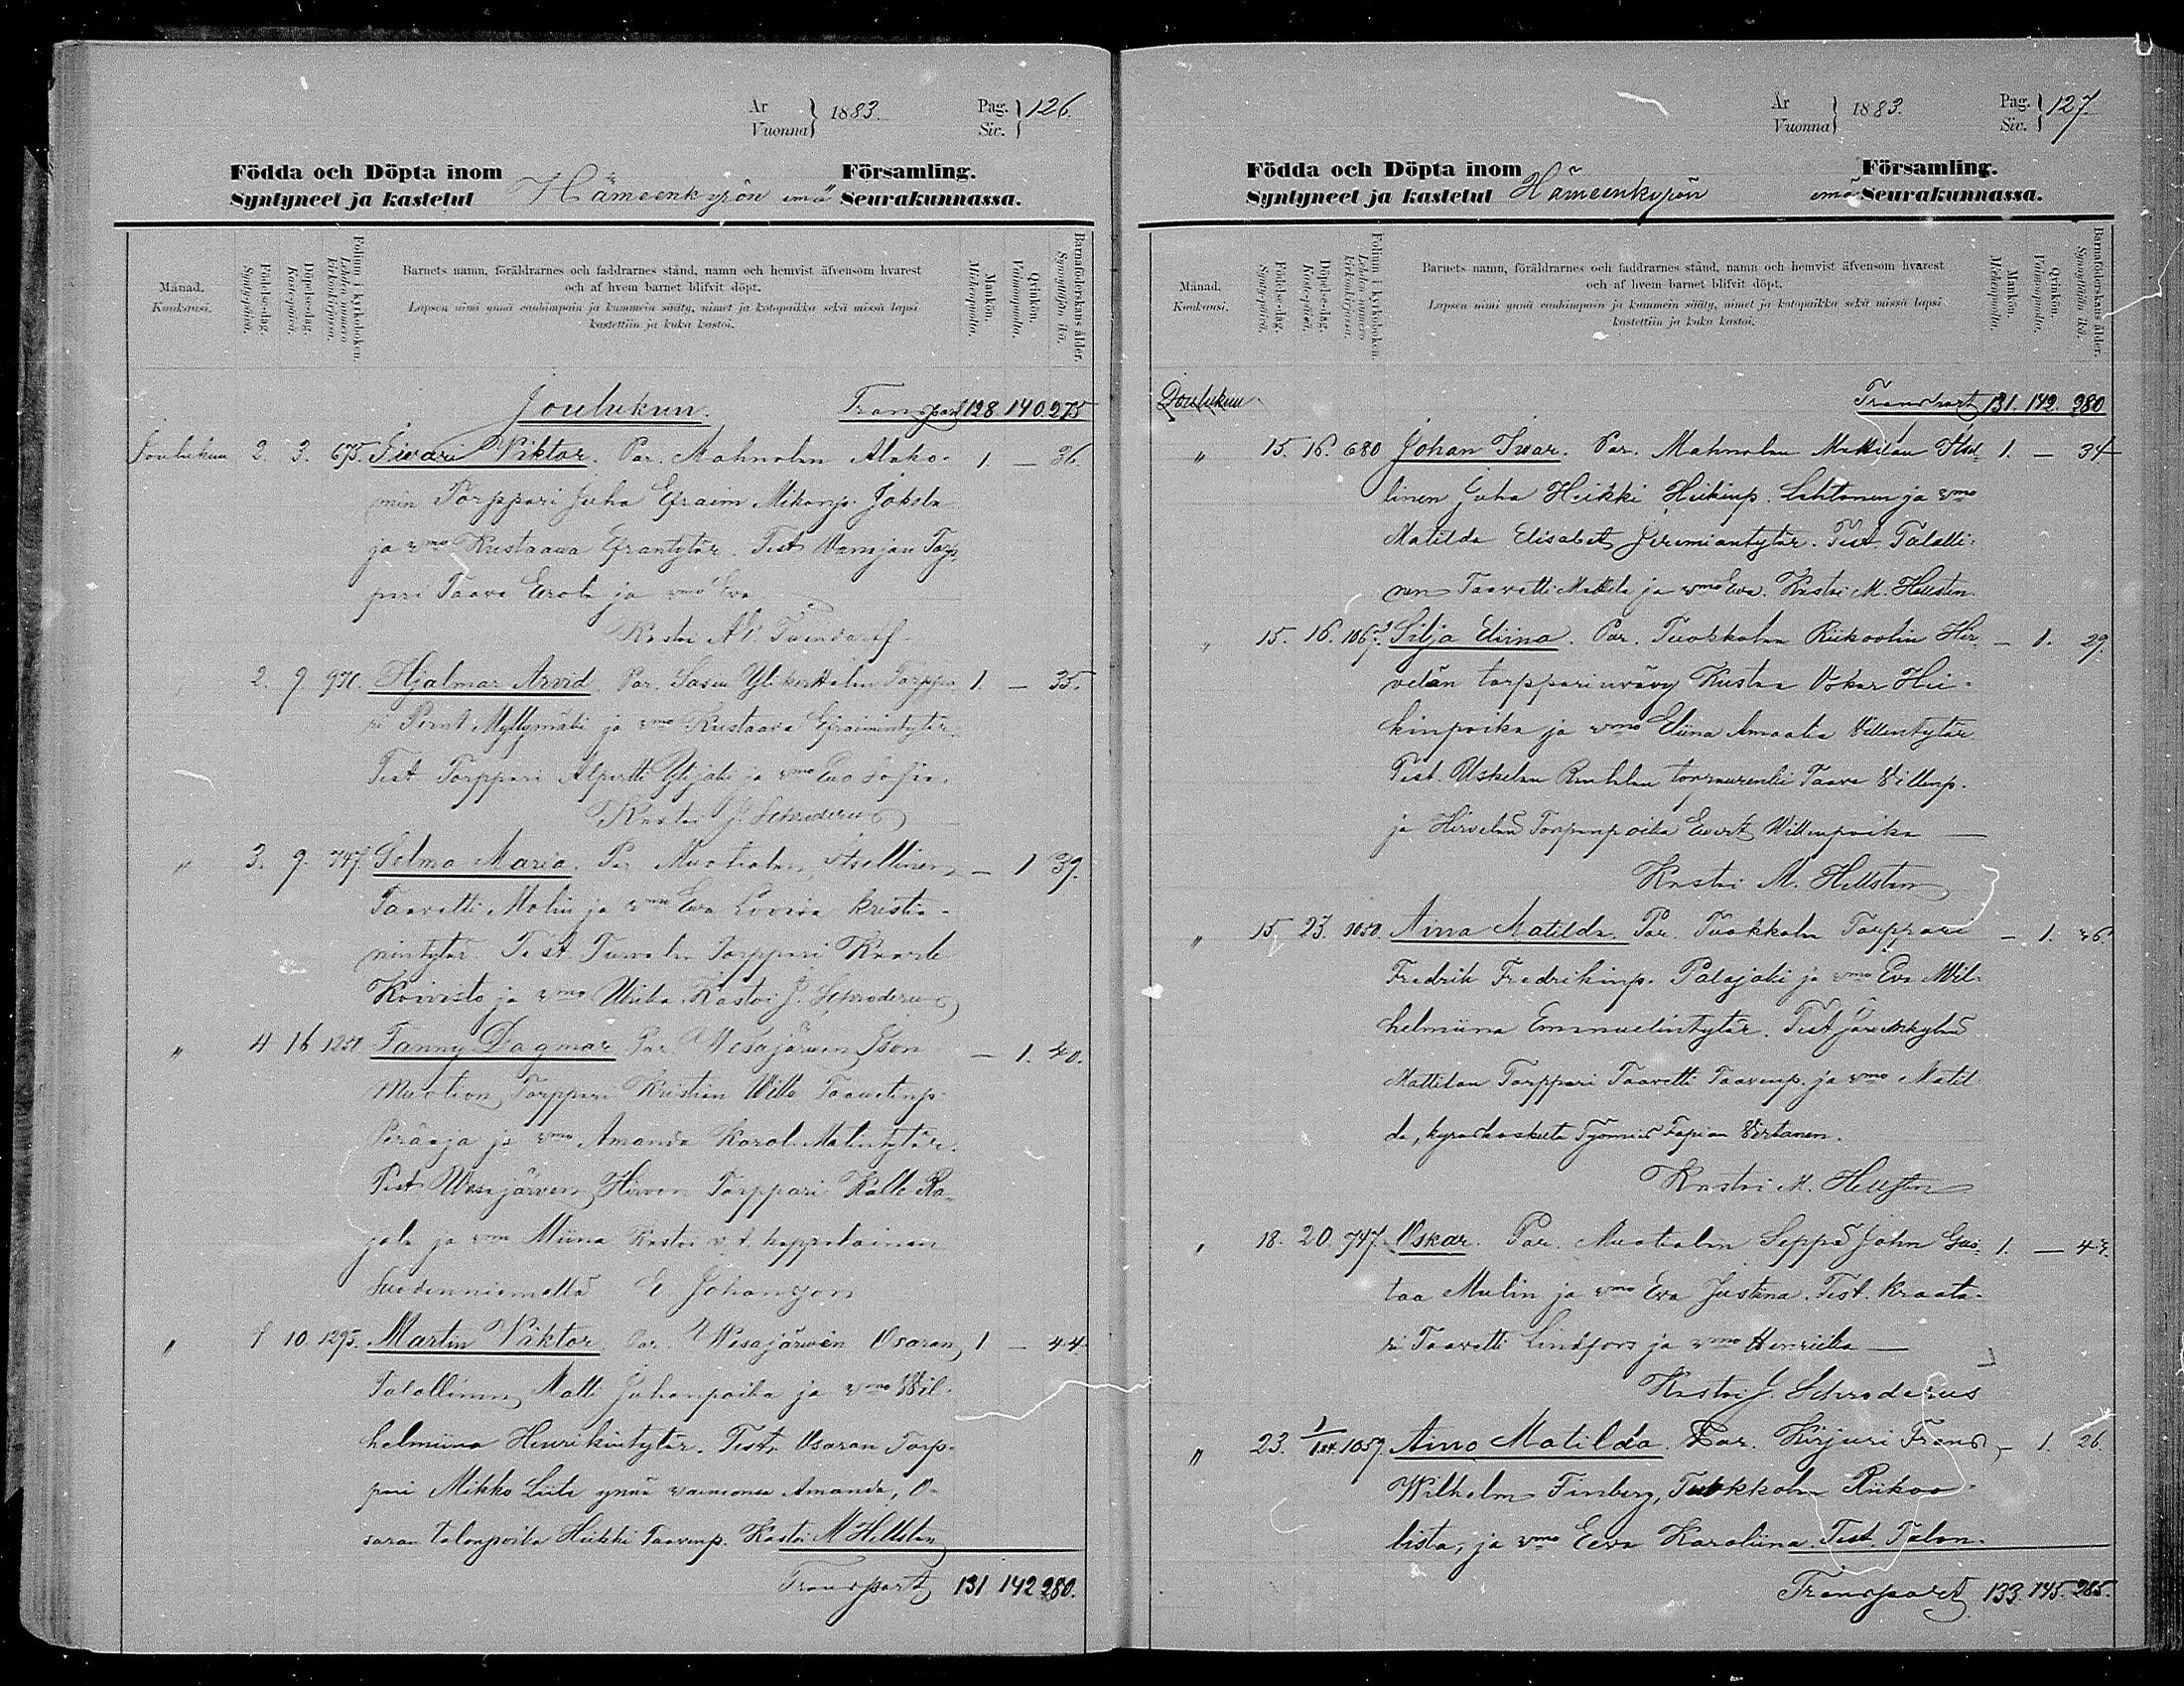 År
Vuonna } 1883.
Pag.
Siv. } 126.
Födda och Döpta inom Församling.
Syntyneet ja kastetut Hämeenkyrön emä Seurakunnassa.
Månad.
Kuukausi.
Födelse-dag.
Syntypäivä.
Döpelse-dag.
Kastepäivä.
Folium i kyrkoboken.
Lehden numero kirkonkirjassa.
Barnets namn, föräldrarnes och faddrarnes stånd, namn och hemvist äfvensom hvarest
och af hvem barnet blifvit döpt.
Lapsen nimi ynnä vanhimpain ja kummein sääty, nimet ja kotopaikka sekä missä lapsi
kastettiin ja kuka kastoi.
Mankön.
Miehenpuolia.
Qvinkön.
Vaimonpuolia.
Barnaföderskans ålder.
Synnyttäjän ikä.
Joulukun. Transport 128 140. 275
Joulukun 2. 3. 675. Siwari Viktor. Par. Mahnalan Alako- 1 — 36.
min Torppari Juha Efraim Mikonp. Jokela
ja vmo Kustaawa Efrantytär. Test. Torp-
pari Taava Erola ja vmo Eva
Kastoi
2. 9. 971. Hjalmar Arvid. Par. Sasin Torppa- 1. — 35.
ri Myllymäki ja vmo Kustaava Efraimintytär
Test. Torppari Alpertti Ylijoki ja vmo Eva Sofia.
Kastoi J. Schroderus
" 3. 9. 747. Selma Maria. Par. Muotialan Itsellinen — 1 39.
Taavetti Molin ja vmo Eva Lovisa Kristia-
nintytär. Test. Torppari Kaarle
Koivisto ja vmo Ulrika. Kastoi J. Schroderus
" 4 16 1251. Fanny Dagmar Par. Wesajärwen Ison — 1. 40.
Muotion Torppari Kristian Wille Taavetinp.
Peräaja ja vmo Amanda Karol. Matintytär.
Test. Wesajärven Hirvon Torppari Kalle Ra-
jala ja vmo Miina Kastoi v. t. kappalainen
Suodenniemellä E Johansson
" 8 10. 1293. Martin Viktor Par. Wesajärwen Osaran 1 — 44.
Talollinen Matti Juhanpoika ja vmo Wil-
helmiina Henrikintytär. Test. Osaran Torp-
pari Mikko Liila ynnä vaimonsa Amanda, O-
saran talonpoika Heikki Taavinp. Kastoi M Hellsten
Transport 131 142 280.
År
Vuonna } 1883.
Pag.
Siv. } 127.
Födda och Döpta inom Församling.
Syntyneet ja kastetut Hämeenkyrön emä Seurakunnassa.
Månad.
Kuukausi.
Födelse-dag.
Syntypäivä.
Döpelse-dag.
Kastepäivä.
Folium i kyrkoboken.
Lehden numero kirkonkirjassa.
Barnets namn, föräldrarnes och faddrarnes stånd, namn och hemvist äfvensom hvarest
och af hvem barnet blifvit döpt.
Lapsen nimi ynnä vanhimpain ja kummein sääty, nimet ja kotopaikka sekä missä lapsi
kastettiin ja kuka kastoi.
Mankön.
Miehenpuolia.
Qvinkön.
Vaimonpuolia.
Barnaföderskans ålder.
Synnyttäjän ikä.
Joulukuu Transport 131. 142. 280
" 15. 16. 680 Johan Iwar. Par. Mahnalan Mattilan Itsel- 1. — 34
linen Juha Heikki Heikinp. Lehtonen ja vmo
Matilda Elisabet Jeremiantytär. Test. Talolli-
nen Taavetti Mattila ja vmo Eva. Kastoi M. Hellsten.
" 15. 16. 1067. Silja Eliina. Par. Tuokkolan Riikoolin Hir- — 1. 29.
velän torpparinvävy Kustaa Oskar Hei-
kinpoika ja vmo Eliina Amaalia Villentytär
Test. Uskelan torpanrenki Taava Villenp.
ja Hirvelän Torpanpoika Evert Willenpoika —
Kastoi M. Hellsten
" 15 23. 1050. Aina Matilda. Par. Tuokkola Torppari — 1. 26.
Fredrik Fredrikinp. Palojoki ja vmo Eva Wil-
helmiina Emanuelintytär. Test. Järvenkylän
Mattilan Torppari Taavetti Taavinp. ja vmo Matil-
da, kyröskoskelta Työmies Fapian Virtanen.
Kastoi M. Hellsten
" 18. 20. 747. Oskar. Par. Muotialan Seppä John Gus- 1. — 43.
taa Mulin ja vmo Eva Justina. Test. Kraata-
ri Taavetti Lindfors ja vmo Henriika —
Kastoi J. Schroderus
" 23. 1/1 84. 1057. Aino Matilda. Par. Kirjuri Frans — 1. 26.
Wilhelm Finberg, Tuokkola Riikoo-
lista, ja vmo Eeva Karoliina. Test. Talon-
Transport 133. 145. 285.